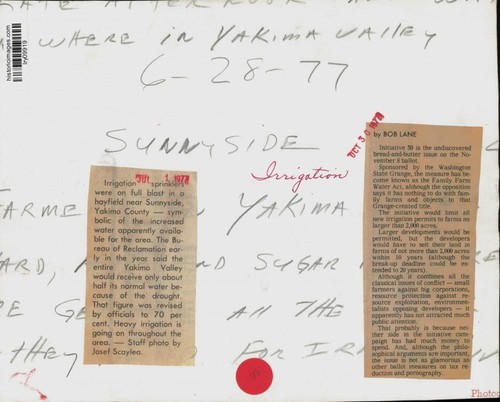 LATE AFTERNOON
WHERE IN YAKIMA VALLEY
6-28-77
historicimages.com
SUNNYSIDE
OCT 30 1977
by BOB LANE
Initiative 59 is the undiscovered
bread-and-butter issue on the No-
vember 8 ballot.
Sponsored by the Washington
State Grange, the measure has be-
come known as the Family Farm
Water Act, although the opposition
says it has nothing to do with fam-
ily farms and objects to that
Grange-created title.
The initiative would limit all
new irrigation permits to farms no
larger than 2,000 acres.
Larger developments would be
permitted, but the developers
would have to sell their land in
farms of not more than 2,000 acres
within 10 years (although the
break-up deadline could be ex-
tended to 20 years).
Although it combines all the
classical issues of conflict — small
farmers against big corporations,
resource protection against re-
source exploitation, environmen-
talists opposing developers — it
apparently has not attracted much
public attention.
That probably is because nei-
ther side in the initiative cam-
paign has had much money to
spend. And, although the phil-
osophical arguments are important,
the issue is not as glamorous as
other ballot measures on tax re-
duction and pornography.
Irrigation
1 1977
Irrigation sprinklers
were on full blast in a
hayfield near Sunnyside,
Yakima County — sym-
bolic of the increased
water apparently availa-
ble for the area. The Bu-
reau of Reclamation ear-
ly in the year said the
entire Yakima Valley
would receive only about
half its normal water be-
cause of the drought.
That figure was revised
by officials to 70 per
cent. Heavy irrigation is
going on throughout the
area. — Staff photo by
Josef Scaylea.
FARME YAKIMA
ARD, ND SUGAR
GE ALL THE
THEY FOR IR
Photo